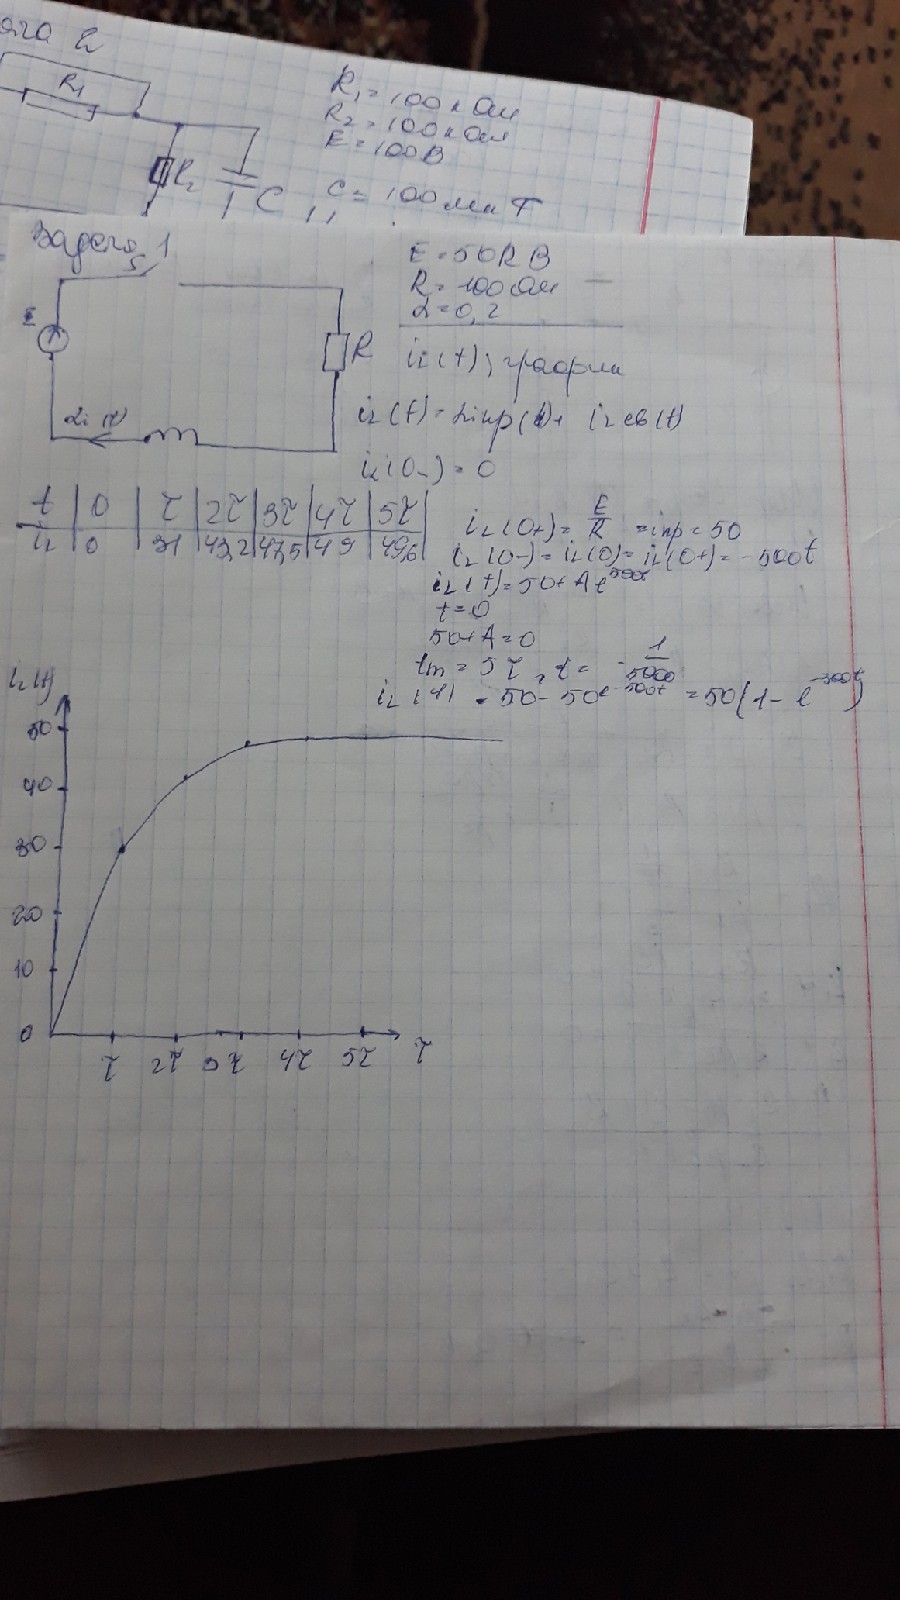 R1
R2
C
R1 = 100 к Ом
R2 = 100 к Ом
E = 100 В
C = 100 мк F
Задача 1
S
E
R
E = 50 R В
R = 100 Ом
L = 0,2
iL(t), график
iL(t) = iLпр(t) + iLсв(t)
iL(0-) = 0
t | 0 | τ | 2τ | 3τ | 4τ | 5τ
iL | 0 | 31 | 43,2 | 47,5 | 49 | 49,6
iL(0+) = E/R = iпр = 50
iL(0-) = iL(0) = iL(0+) = -500t
iL(t) = 50 + A e
t = 0
50 + A = 0
tm = 5τ
iL(t) = 50 - 50e^-500t = 50(1 - e^-500t)
iL(t)
50
40
30
20
10
0
τ 2τ 3τ 4τ 5τ τ